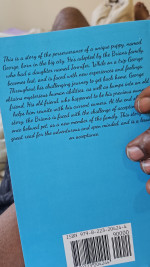 This is a story of the perseverance of a unique puppy, named
George, born in the big city. Was adopted by the Brians family
who had a daughter named Jennifer. While on a trip George
becomes lost, and is faced with new experiences and feelings.
Throughout his challenging journey to get back home, George
attains mysterious human abilities, as well as bumps into an old
friend. His old friend, who happened to be his previous
helps him reunite with his current owners. At the end of
story, the Brians is faced with the challenge of accepting
own beloved pet, as a new member of the family. This story
good read for the adventurous and open minded, and is
on acceptance.
ISBN 979-8-223-20424-6
90000